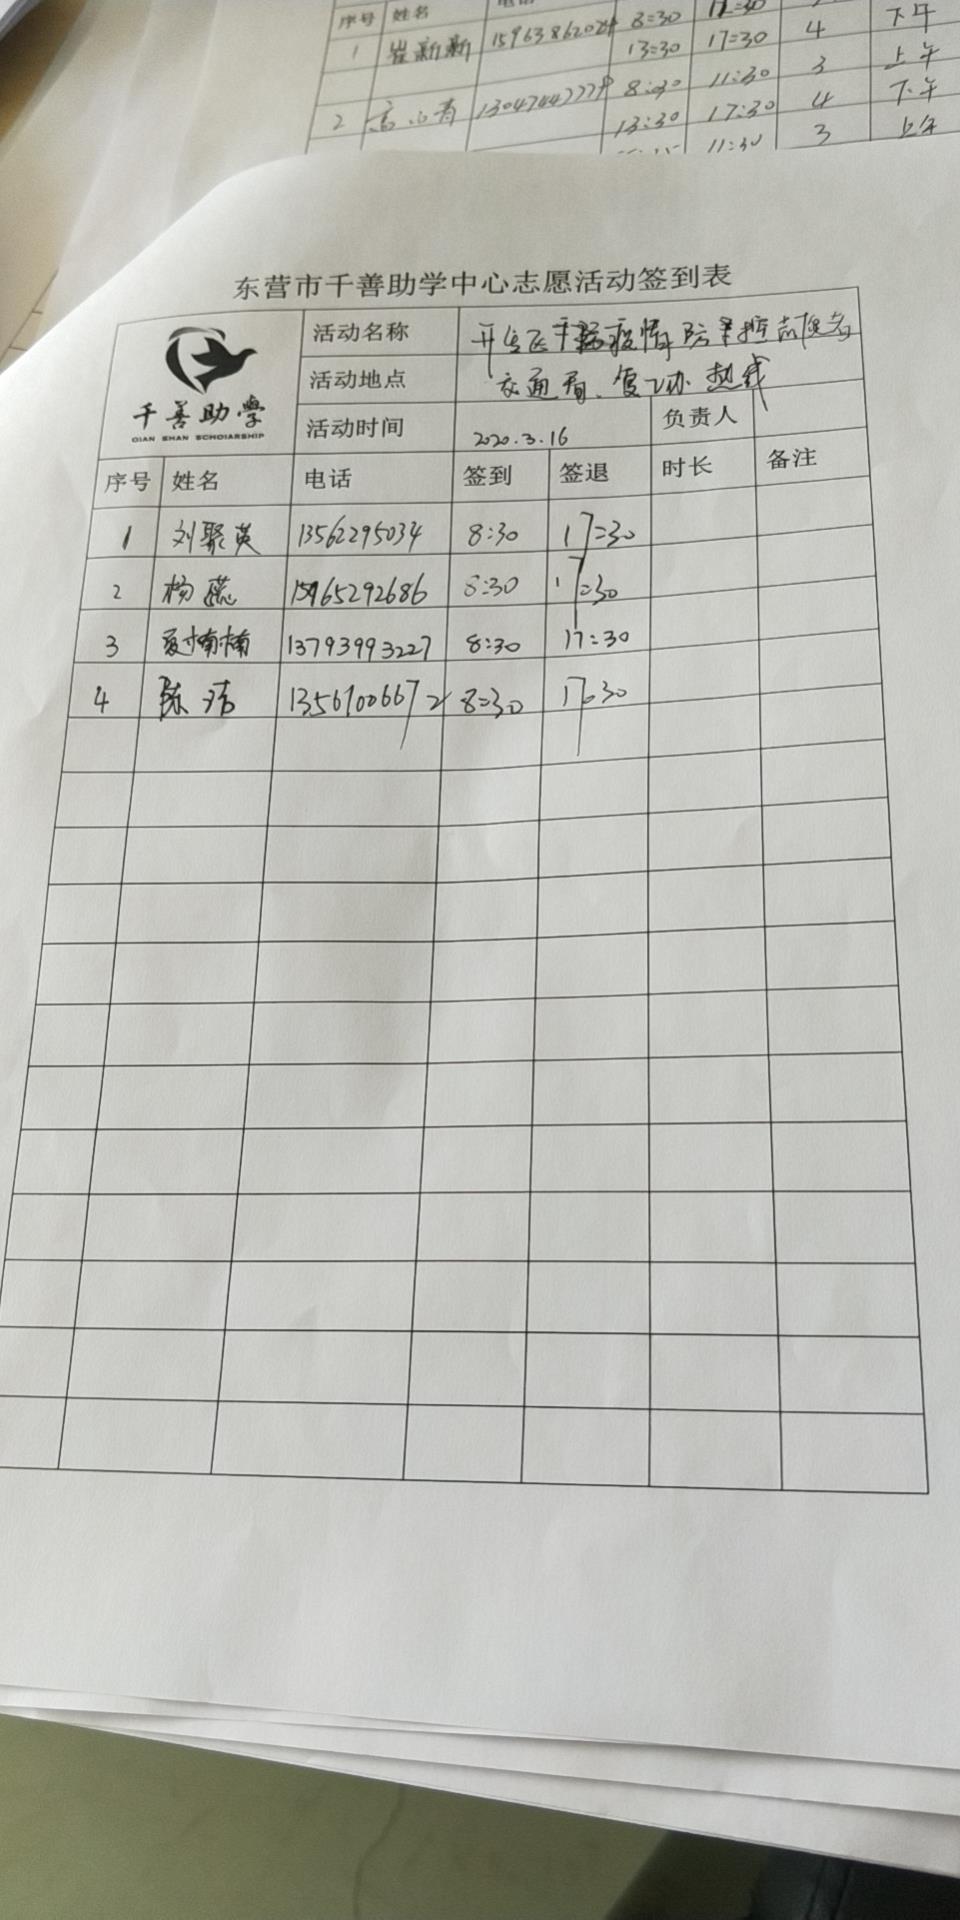 序号 姓名
1 崔新新 15963862024 8:30
13:30 17:30 4 下午
2 8:30 11:30 3 上午
13:30 17:30 4 下午
11:30 3 上午
东营市千善助学中心志愿活动签到表
千善助學
QIAN SHAN SCHOLARSHIP
活动名称 疫情防控志愿者
活动地点 交通局、复工办热线
活动时间 2020.3.16 负责人
序号 姓名 电话 签到 签退 时长 备注
1 刘聚英 13562295034 8:30 17:30
2 杨蕊 15965292686 8:30 17:30
3 夏楠楠 13793993227 8:30 17:30
4 陈洁 13561006672 8:30 17:30